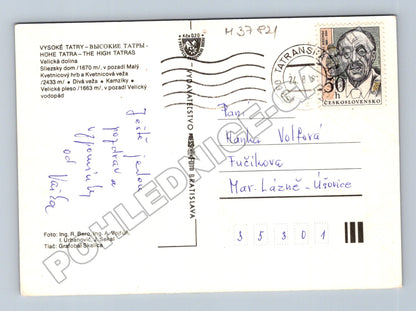 VYSOKÉ TATRY - ВЫСОКИЕ ТАТРЫ -
HOHE TATRA - THE HIGH TATRAS
Velická dolina
Sliezsky dom /1670 m/, v pozadí Malý
Kvetnicový hrb a Kvetnicová veža
/2433 m/ • Divá veža • Kamzíky •
Velické pleso /1663 m/, v pozadí Velický
vodopád
Kčs 0,20
M 37 821
50 h
ČESKOSLOVENSKO
VYDAVATEĽSTVO
BRATISLAVA
Ještě jednou
pozdrav a
vzpomínky
od
Paní
Hanka Volfová
Fučíkova
Mar. Lázně - Úšovice
3 5 3 0 1
Foto: Ing. R. Bero, Ing. A.
I. Urbanovič,
Tlač: Grafobal Skalica
POHLEDNICE